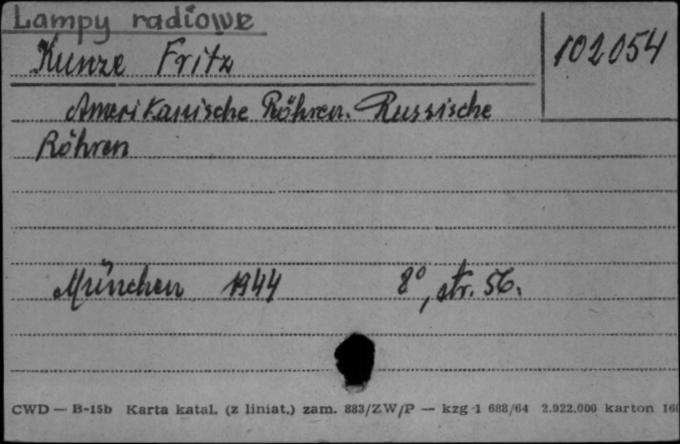 Lampy radiowe
Kunze Fritz
102054
Amerikanische Röhren. Russische
Röhren
München 1944 8°, str. 56.
CWD — B-15b Karta katal. (z liniat.) zam. 883/ZW/P — kzg 1 688/64 2.922.000 karton